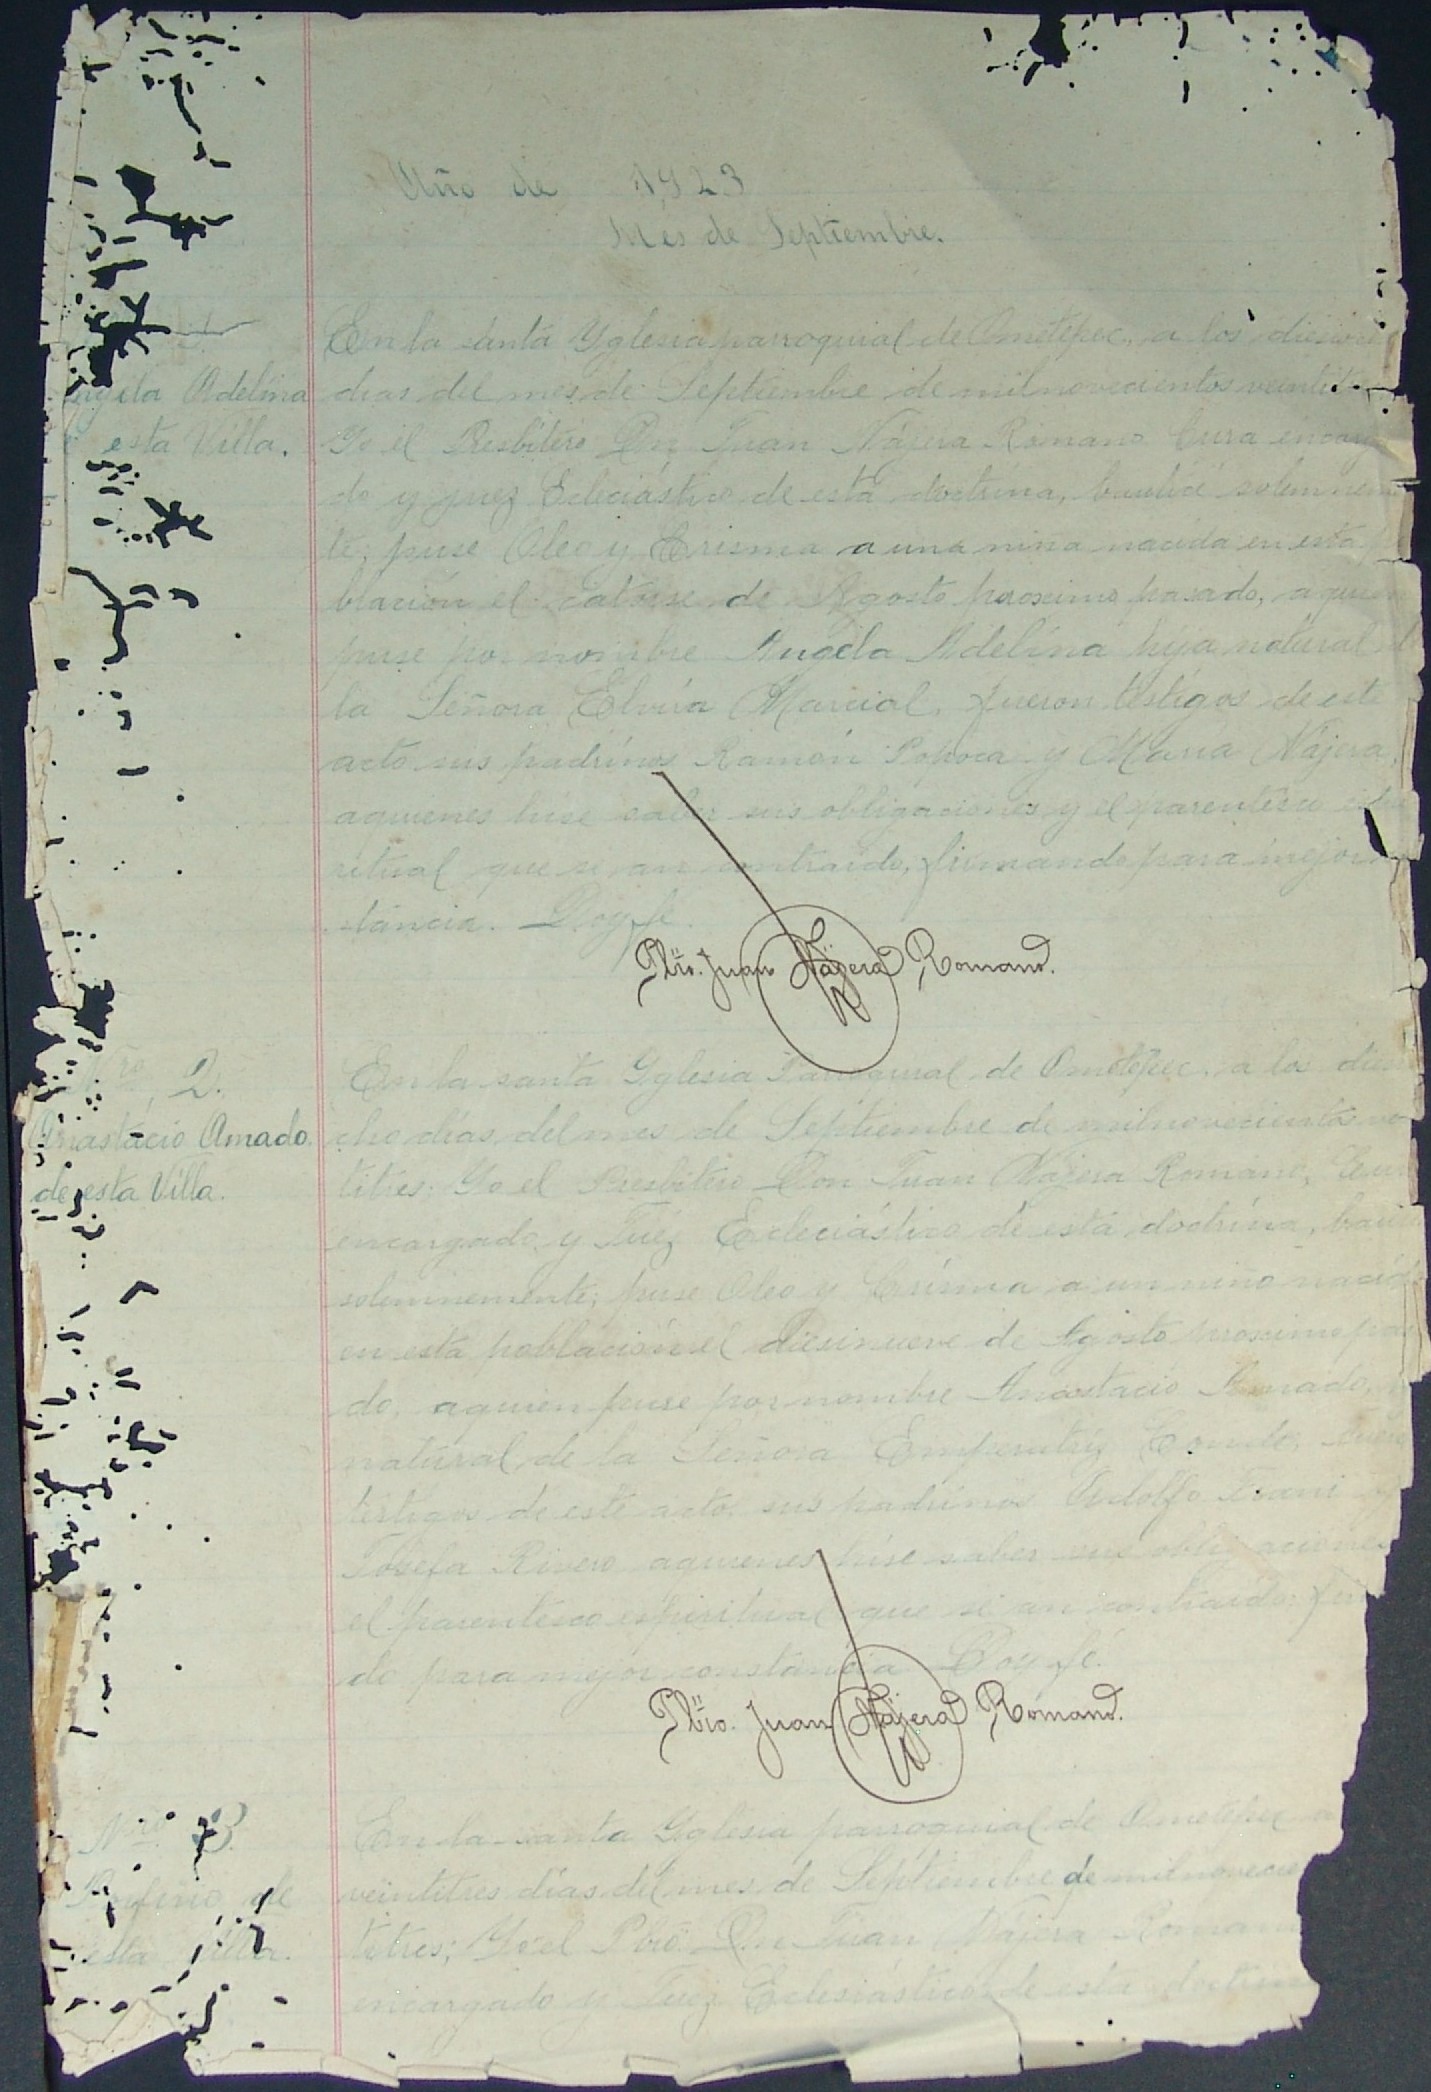 Año de 1923
Mes de Septiembre.
1
Angela Adelina
esta Villa.
En la santa Yglesia parroquial de Ometepec, a los
dias del mes de Septiembre de milnovecientos
Yo el Presbítero Don Juan Nájera Romano Cura encarga
do y juez Ecleciástico de esta doctrina, bauticé solemnemen
te, puse Oleo y Crisma a una niña nacida en esta po
blación el catorse de Agosto proximo pasado, aquien
puse por nombre Angela Adelina hija natural d
la Señora Elvira Marcial, fueron testigos de este
acto sus padrinos Ramón Popoca y María Nájera,
aquienes hise saber sus obligaciones y el parentesco
ritual que se an contraido, firmando para mejor
stancia. Doy fe.
Pbro. Juan Nájera Romano.
Nro. 2.
Anastacio Amado
de esta Villa.
En la santa Yglesia Parroquial de Ometepec, a los
cho días del mes de Septiembre de milnovecientos
titres: Yo el Presbítero Don Juan Nájera Romano, Cura
encargado y Juéz Ecleciástico de esta doctrina,
solemnemente; puse Oleo y Crisma a un niño nacido
en esta poblacion el diesinueve de Agosto proximo pa
do, aquien puse por nombre Anastacio Amado,
natural de la Señora
testigos de este acto sus padrinos Adolfo
Josefa Rivero aquienes hise saber sus obligaciones
el parentesco espiritual que se an contraido:
do para mejor constancia Doy fé.
Pbro. Juan Nájera Romano.
Nro 3.
Porfirio de
esta Villa.
En la santa Yglesia parroquial de Ometepec a
veintitres días del mes de Septiembre de milnovecie
titres; Yo el Pbro. Dn Juan Nájera Roman
encargado y Juez Eclesiástico de esta doctrin